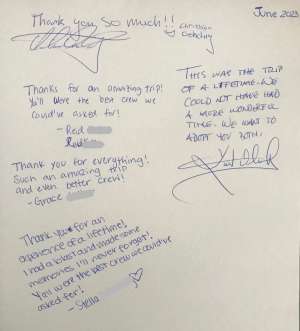 June 2023
Thank you so much!!
Thanks for an amazing trip!
You'll were the best crew we
could've asked for!
- Red
Thank you for everything!
Such an amazing trip
and even better crew!
- Grace
Thank you for an
experience of a lifetime!
I had a blast and made some
memories I'll never forget!
You'll were the best crew we could've
asked for!
- Stella
This was the trip
of a lifetime. We
could not have had
a more wonderful
time. We want to
adopt you both!